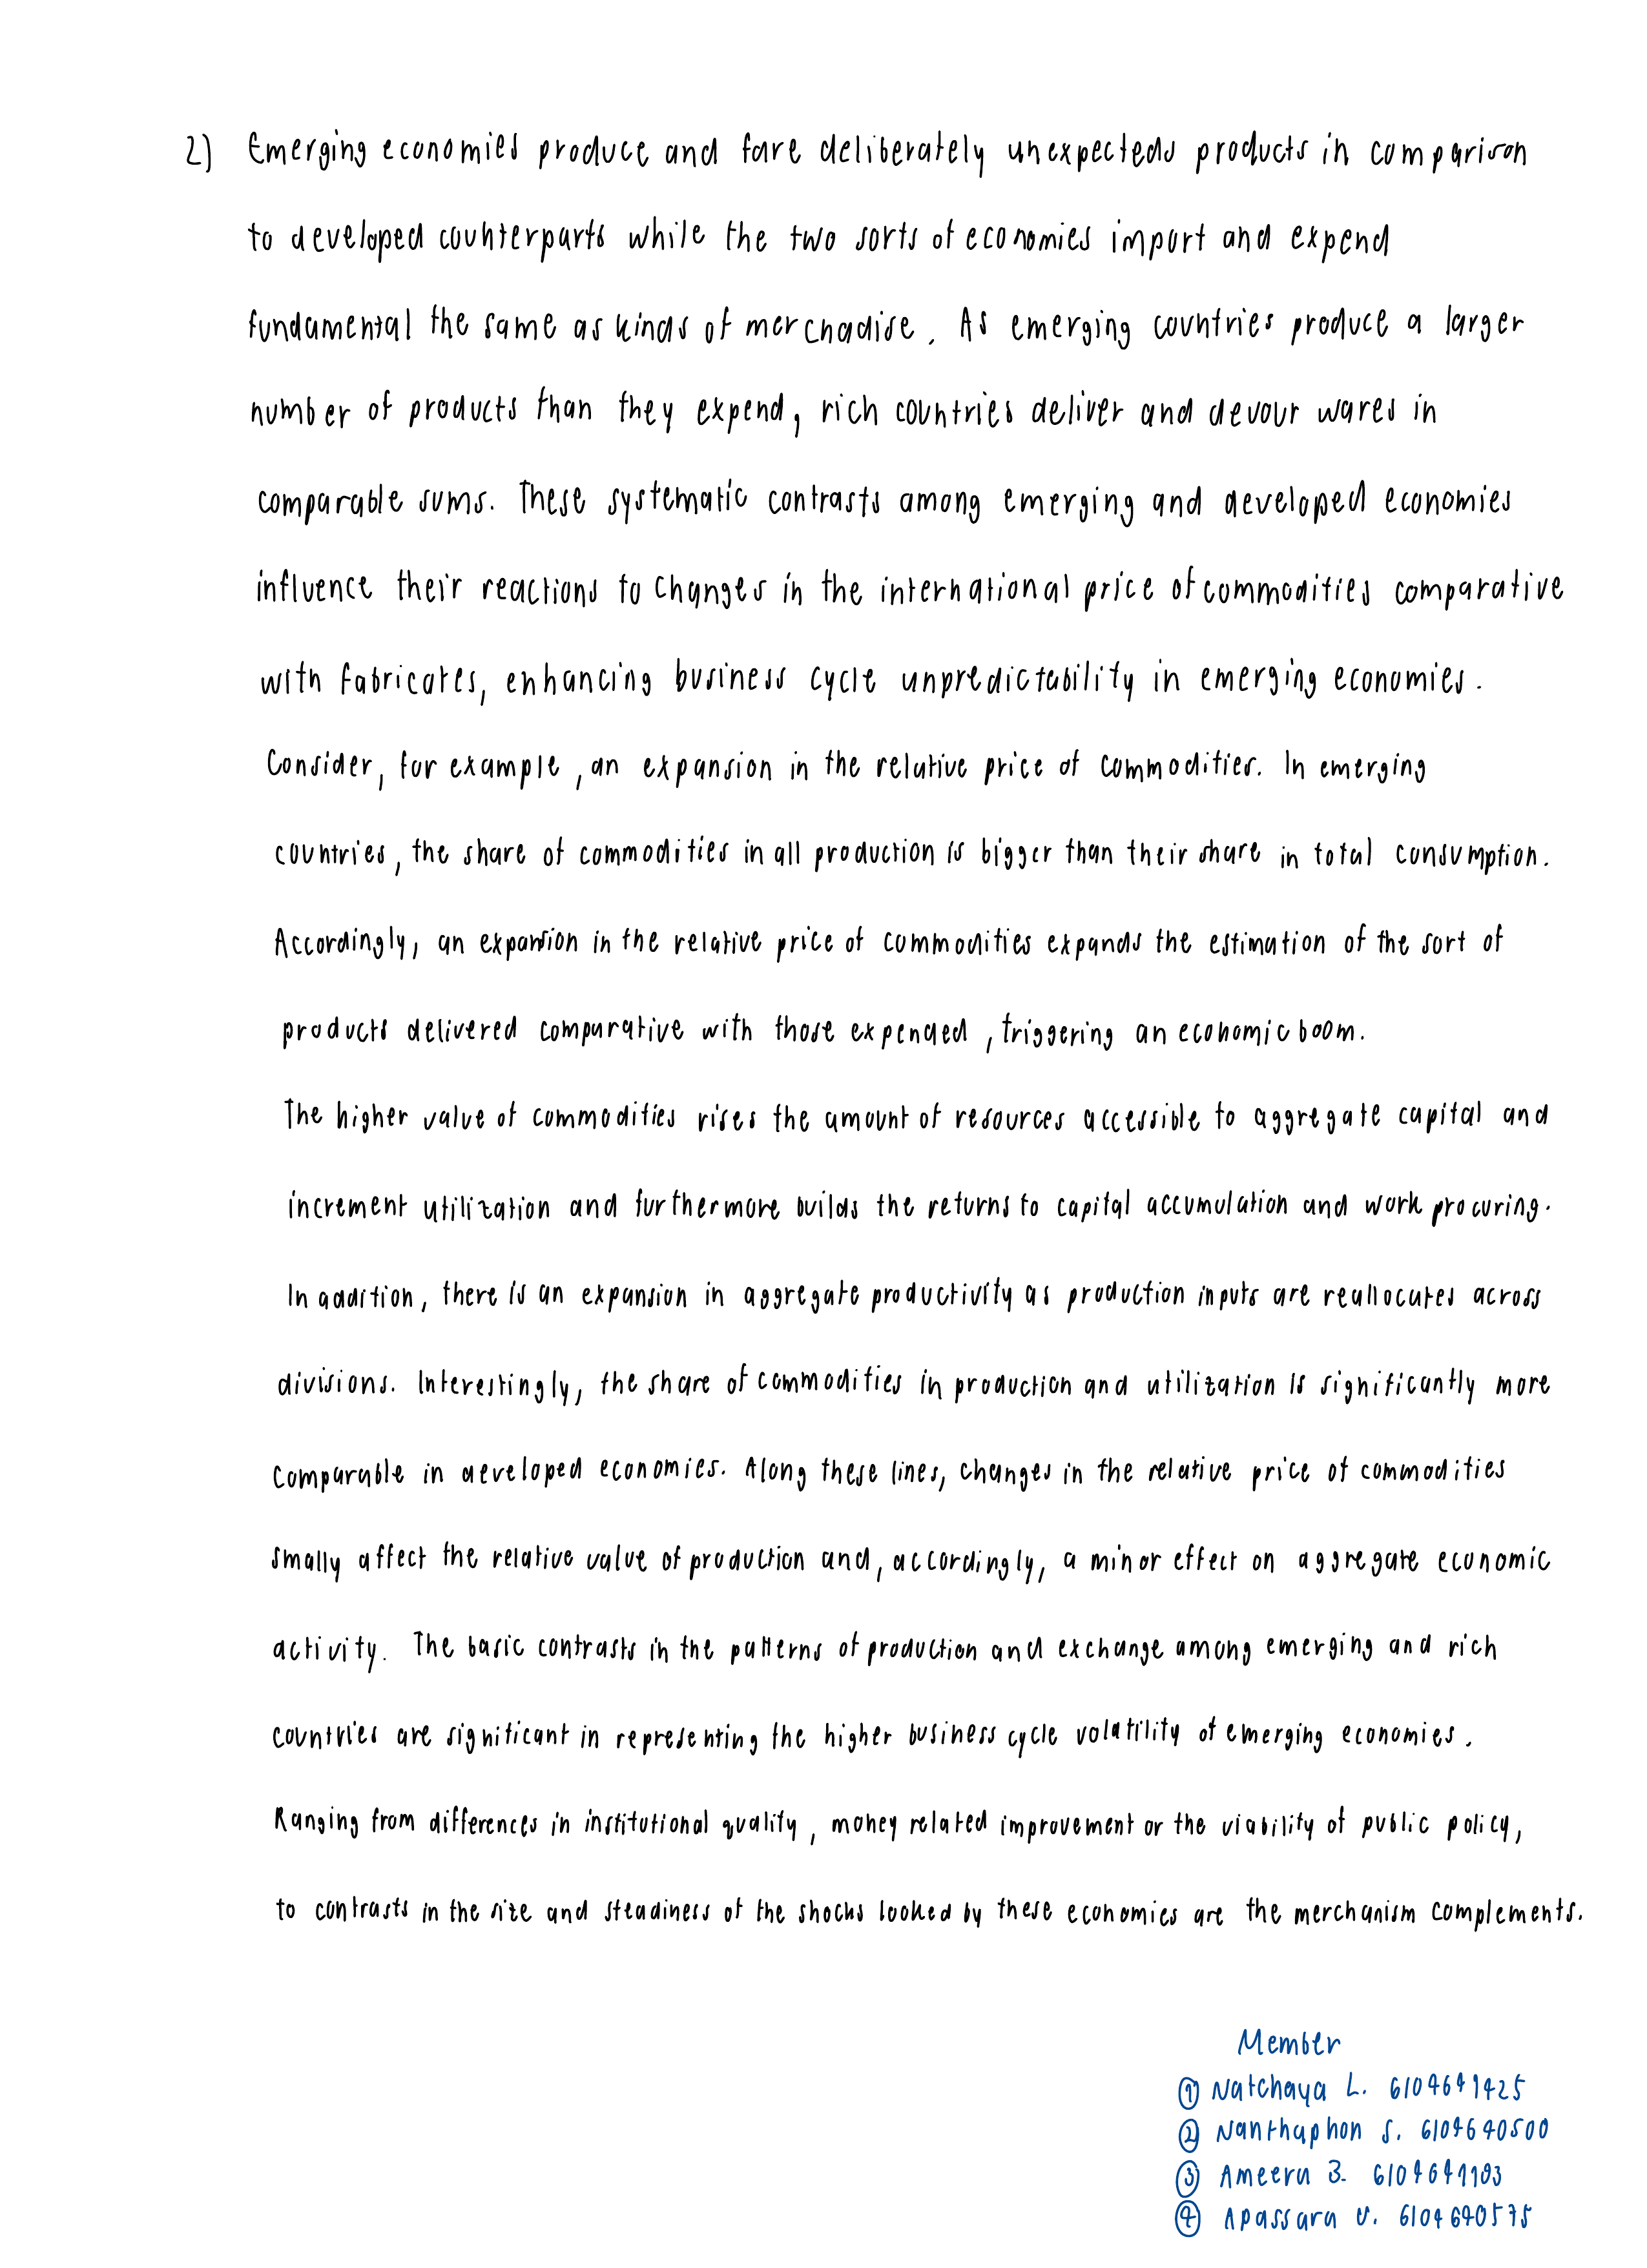 2) Emerging economies produce and fare deliberately unexpecteds products in comparison
to developed counterparts while the two sorts of economies import and expend
fundamental the same as kinds of merchadise. As emerging countries produce a larger
number of products than they expend, rich countries deliver and devour wares in
comparable sums. These systematic contrasts among emerging and developed economies
influence their reactions to changes in the international price of commodities comparative
with fabricates, enhancing business cycle unpredictability in emerging economies.
Consider, for example, an expansion in the relative price of commodities. In emerging
countries, the share of commodities in all production is bigger than their share in total consumption.
Accordingly, an expansion in the relative price of commodities expands the estimation of the sort of
products delivered comparative with those expended, triggering an economic boom.
The higher value of commodities rises the amount of resources accessible to aggregate capital and
increment utilization and furthermore builds the returns to capital accumulation and work procuring.
In addition, there is an expansion in aggregate productivity as production inputs are reallocates across
divisions. Interestingly, the share of commodities in production and utilization is significantly more
comparable in developed economies. Along these lines, changes in the relative price of commodities
smally affect the relative value of production and, accordingly, a minor effect on aggregate economic
activity. The basic contrasts in the patterns of production and exchange among emerging and rich
countries are significant in representing the higher business cycle volatility of emerging economies.
Ranging from differences in institutional quality, money related improvement or the viability of public policy,
to contrasts in the size and steadiness of the shocks looked by these economies are the merchanism complements.
Member
① Natchaya L. 6104641425
② Nanthaphon S. 6104640500
③ Ameera B.
④ Apassara U. 6104640575